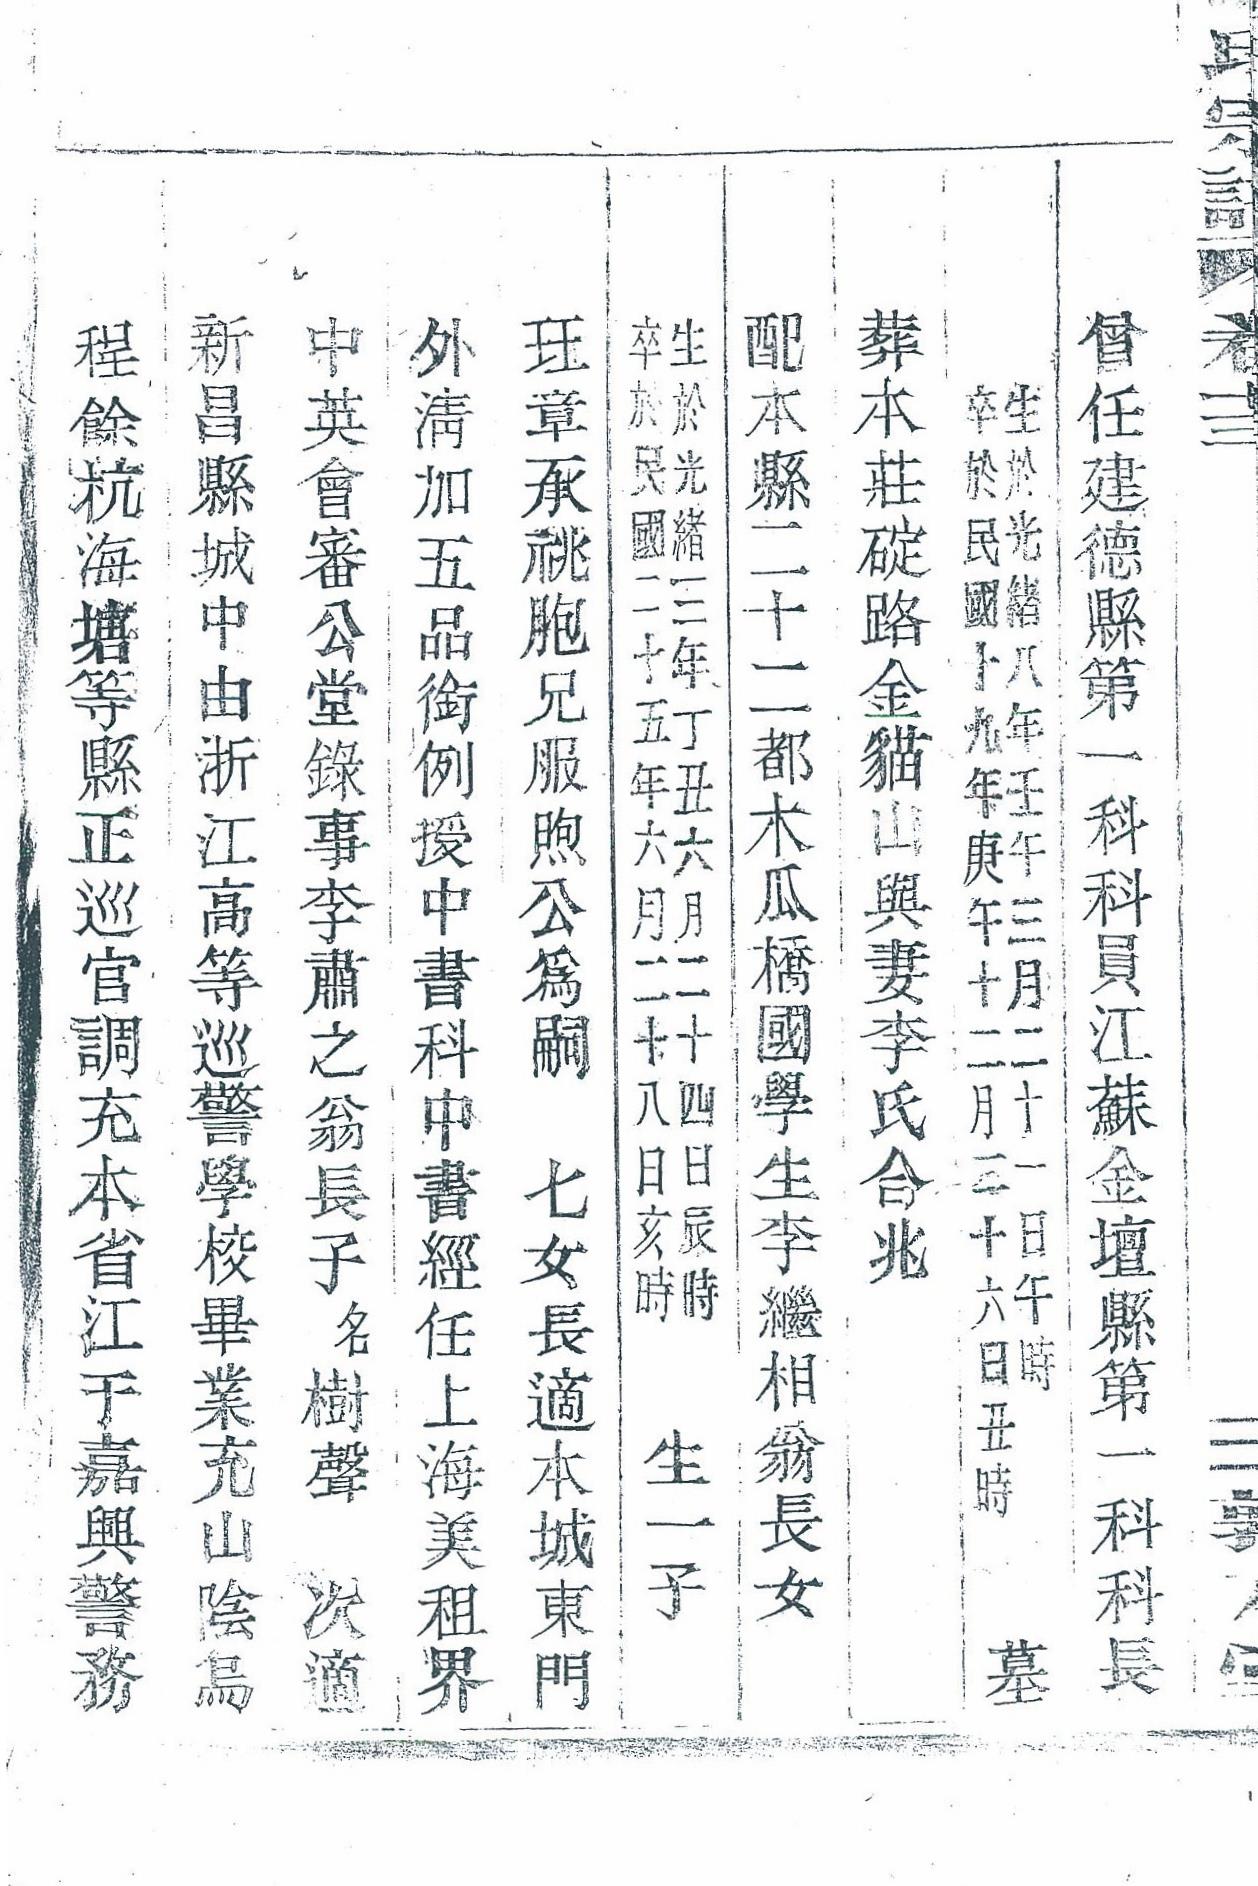 氏宗譜 卷三 三
曾任建德縣第一科科員江蘇金壇縣第一科科長
生於光緒八年壬午三月二十一日午時
卒於民國十九年庚午十二月二十六日丑時
墓
葬本莊碇路金貓山與妻李氏合兆
配本縣二十二都木瓜橋國學生李繼相翁長女
生於光緒三年丁丑六月二十四日辰時
卒於民國二十五年六月二十八日亥時
生一子
玨章承祧胞兄服煦公為嗣 七女長適本城東門
外淸加五品銜例授中書科中書經任上海美租界
中英會審公堂錄事李肅之翁長子名樹聲 次適
新昌縣城中由浙江高等巡警學校畢業充山陰烏
程餘杭海塘等縣正巡官調充本省江干嘉興警務